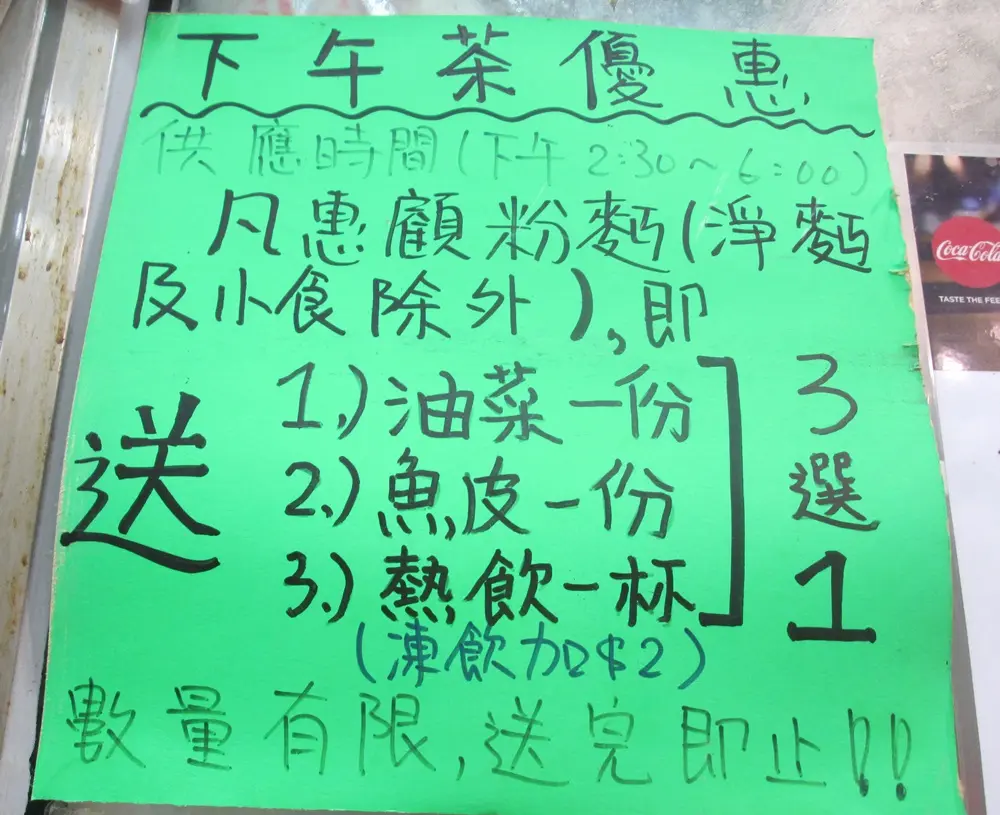 下午茶優惠
供應時間(下午2:30~6:00)
凡惠顧粉麵(淨麵
及小食除外),即
送
1.)油菜一份
2.)魚皮一份
3.)熱飲一杯
(凍飲加$2)
3
選
1
數量有限,送完即止!!
Coca-Cola
TASTE THE FEE